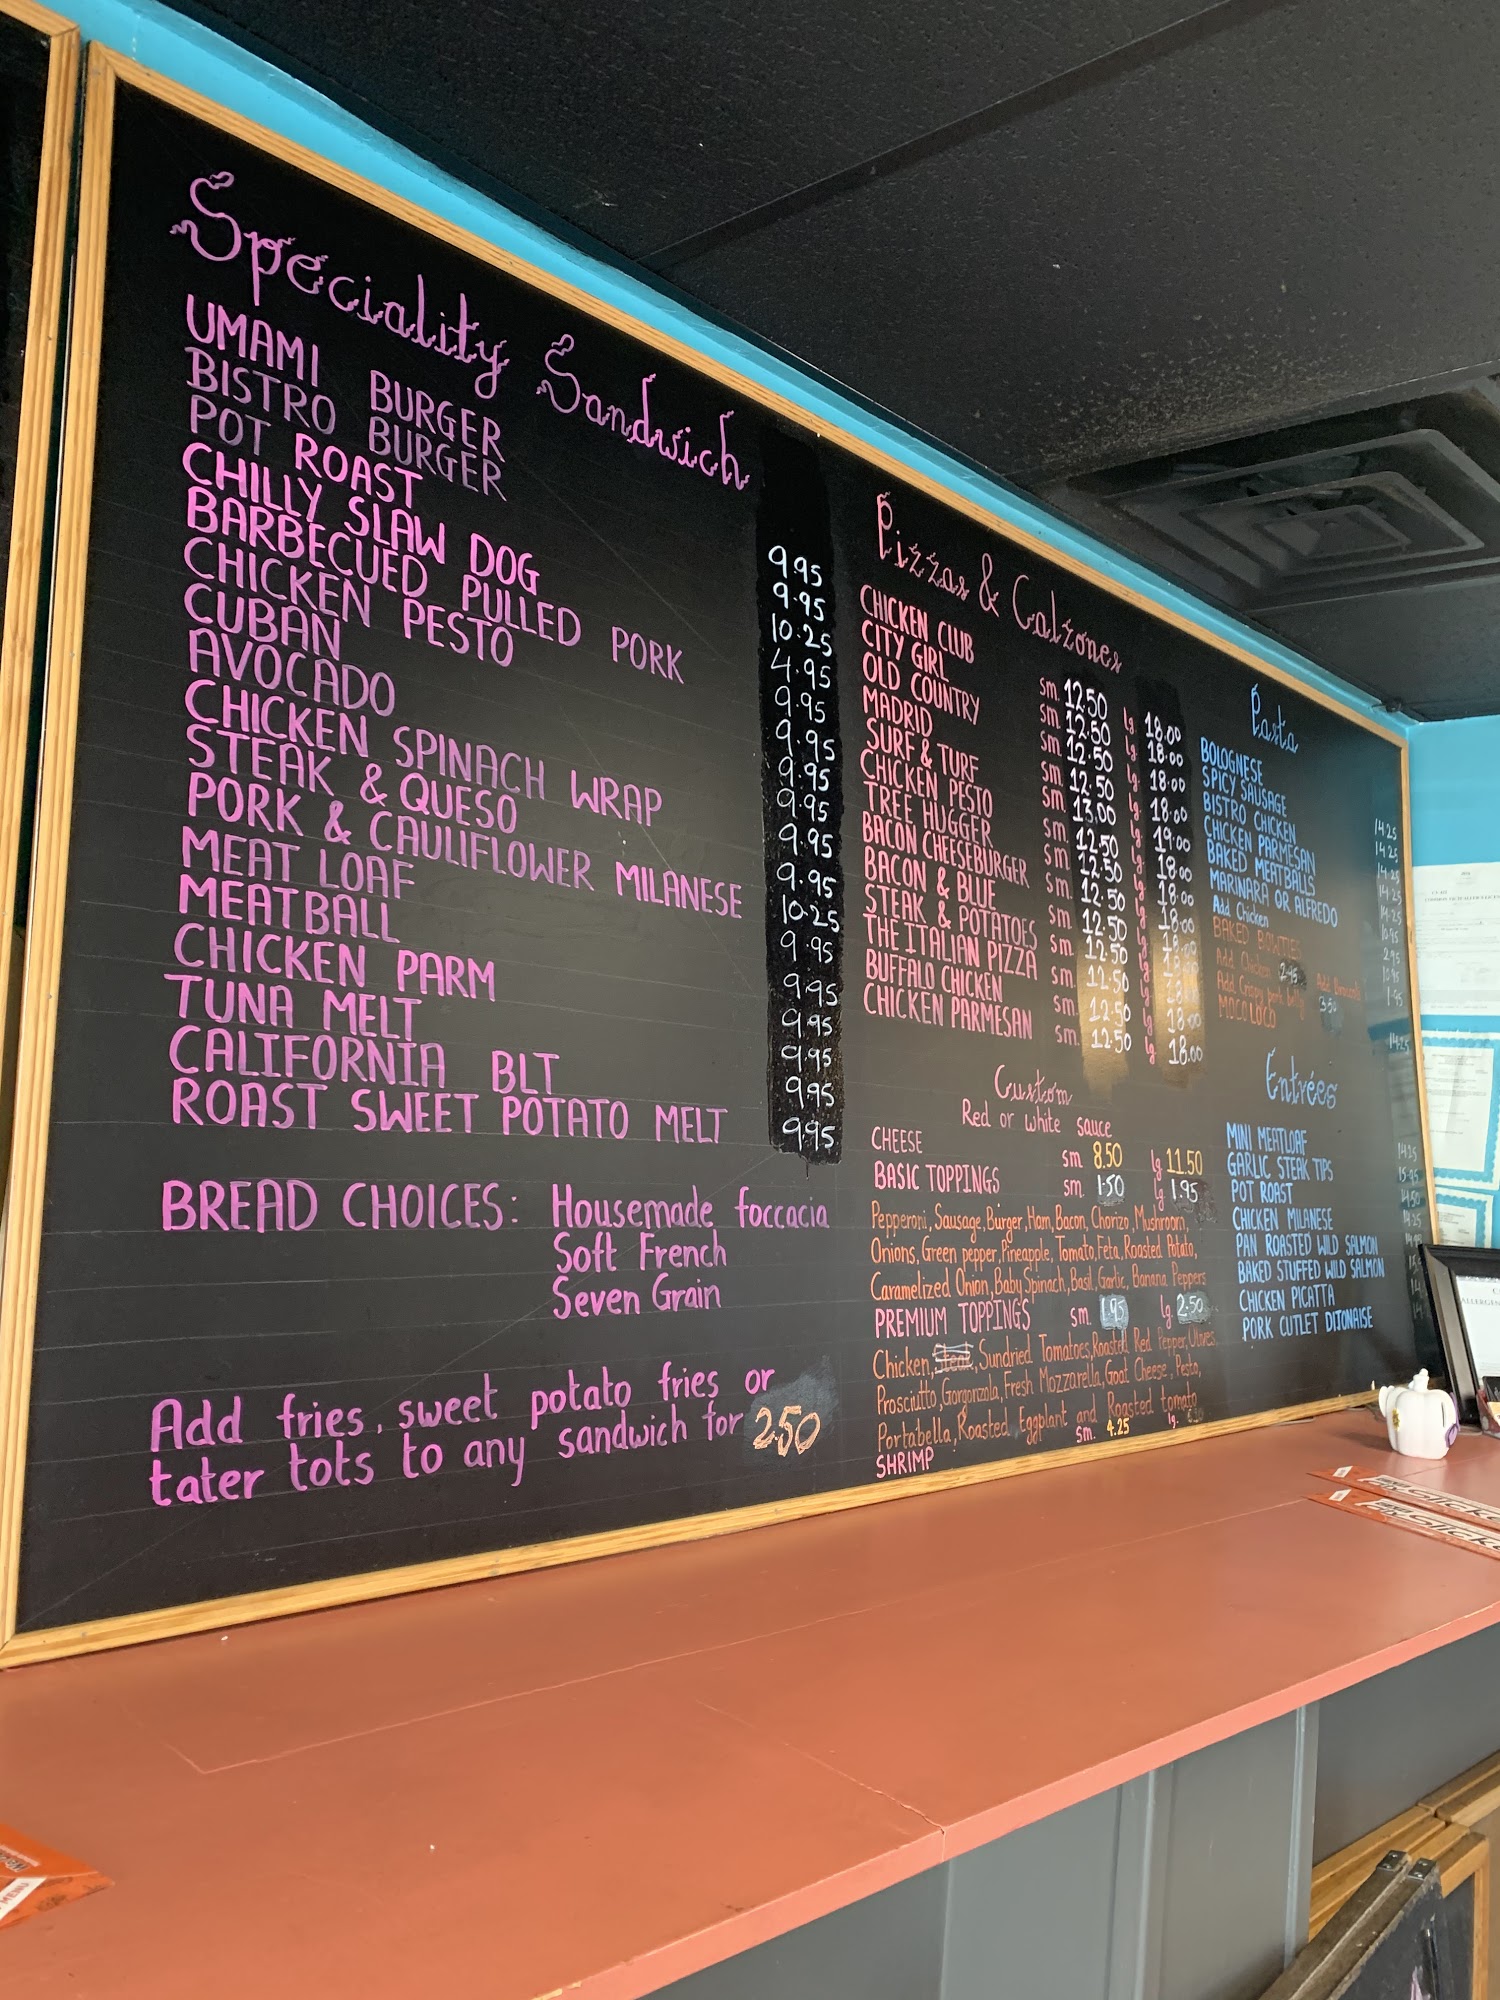 Speciality Sandwich
UMAMI BURGER 9.95
BISTRO BURGER 9.95
POT ROAST 10.25
CHILLY SLAW DOG 4.95
BARBECUED PULLED PORK 9.95
CHICKEN PESTO 9.95
CUBAN 9.95
AVOCADO 9.95
CHICKEN SPINACH WRAP 9.95
STEAK & QUESO 9.95
PORK & CAULIFLOWER MILANESE 10.25
MEAT LOAF 9.95
MEATBALL 9.95
CHICKEN PARM 9.95
TUNA MELT 9.95
CALIFORNIA BLT 9.95
ROAST SWEET POTATO MELT 9.95
BREAD CHOICES: Housemade foccacia
Soft French
Seven Grain
Add fries, sweet potato fries or
tater tots to any sandwich for 2.50
Pizzas & Calzones
CHICKEN CLUB sm. 12.50 lg 18.00
CITY GIRL sm. 12.50 lg 18.00
OLD COUNTRY sm. 12.50 lg 18.00
MADRID sm. 12.50 lg 18.00
SURF & TURF sm. 13.00 lg 19.00
CHICKEN PESTO sm. 12.50 lg 18.00
TREE HUGGER sm. 12.50 lg 18.00
BACON CHEESEBURGER sm. 12.50 lg 18.00
BACON & BLUE sm. 12.50 lg 18.00
STEAK & POTATOES sm. 12.50 lg 18.00
THE ITALIAN PIZZA sm. 12.50 lg 18.00
BUFFALO CHICKEN sm. 12.50 lg 18.00
CHICKEN PARMESAN sm. 12.50 lg 18.00
Custom
Red or white sauce
CHEESE sm. 8.50 lg 11.50
BASIC TOPPINGS sm. 1.50 lg 1.95
Pepperoni, Sausage, Burger, Ham, Bacon, Chorizo, Mushroom,
Onions, Green pepper, Pineapple, Tomato, Feta, Roasted Potato,
Caramelized Onion, Baby Spinach, Basil, Garlic, Banana Peppers
PREMIUM TOPPINGS sm. 1.95 lg 2.50
Chicken, Steak, Sundried Tomatoes, Roasted Red Pepper, Olives,
Prosciutto, Gorgonzola, Fresh Mozzarella, Goat Cheese, Pesto,
Portabella, Roasted Eggplant and Roasted tomato
SHRIMP sm. 4.25 lg.
Pasta
BOLOGNESE 14.25
SPICY SAUSAGE 14.25
BISTRO CHICKEN 14.25
CHICKEN PARMESAN 14.25
BAKED MEATBALLS 14.25
MARINARA OR ALFREDO 10.95
Add Chicken 2.95
BAKED BOWTIES 10.95
Add Chicken 2.95 Add 1.95
Add Crispy pork belly 3.50
MOCO LOCO 14.25
Entrées
MINI MEATLOAF 14.25
GARLIC STEAK TIPS 15.95
POT ROAST 14.50
CHICKEN MILANESE 14.25
PAN ROASTED WILD SALMON
BAKED STUFFED WILD SALMON
CHICKEN PICATTA
PORK CUTLET DIJONAISE
MENU